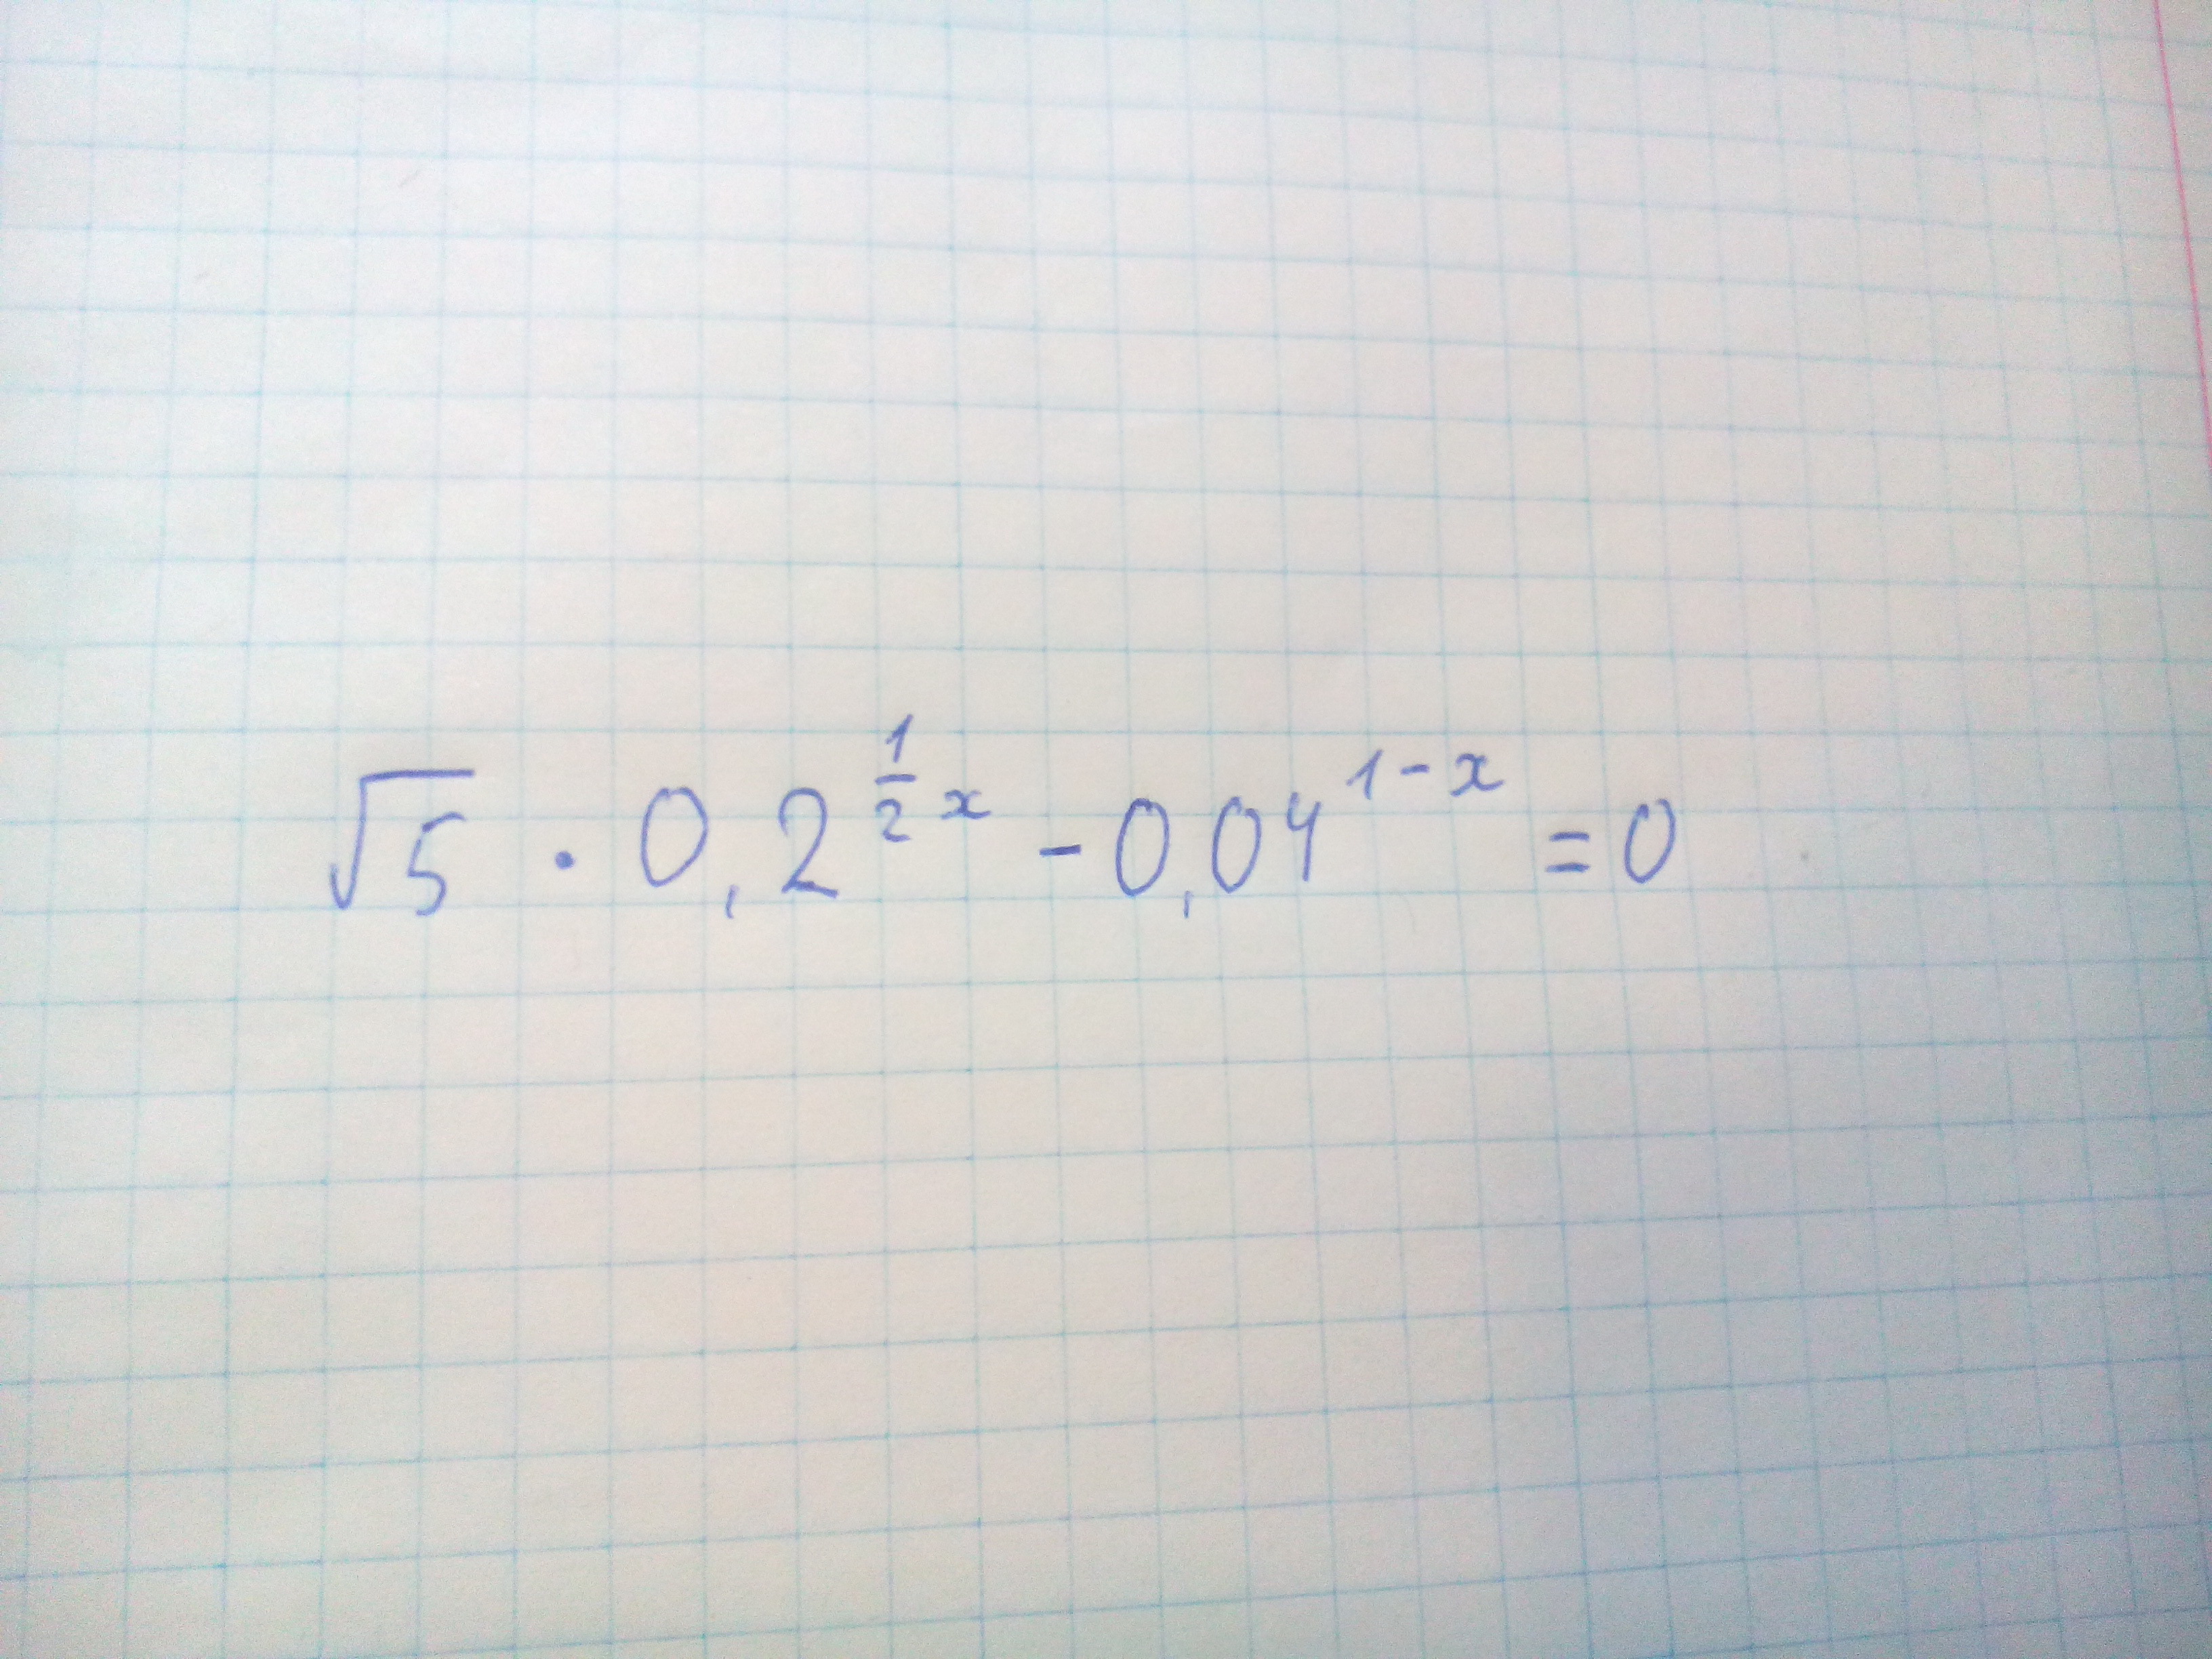 √5 · 0,2^{\frac{1}{2}x} - 0,04^{1-x} = 0